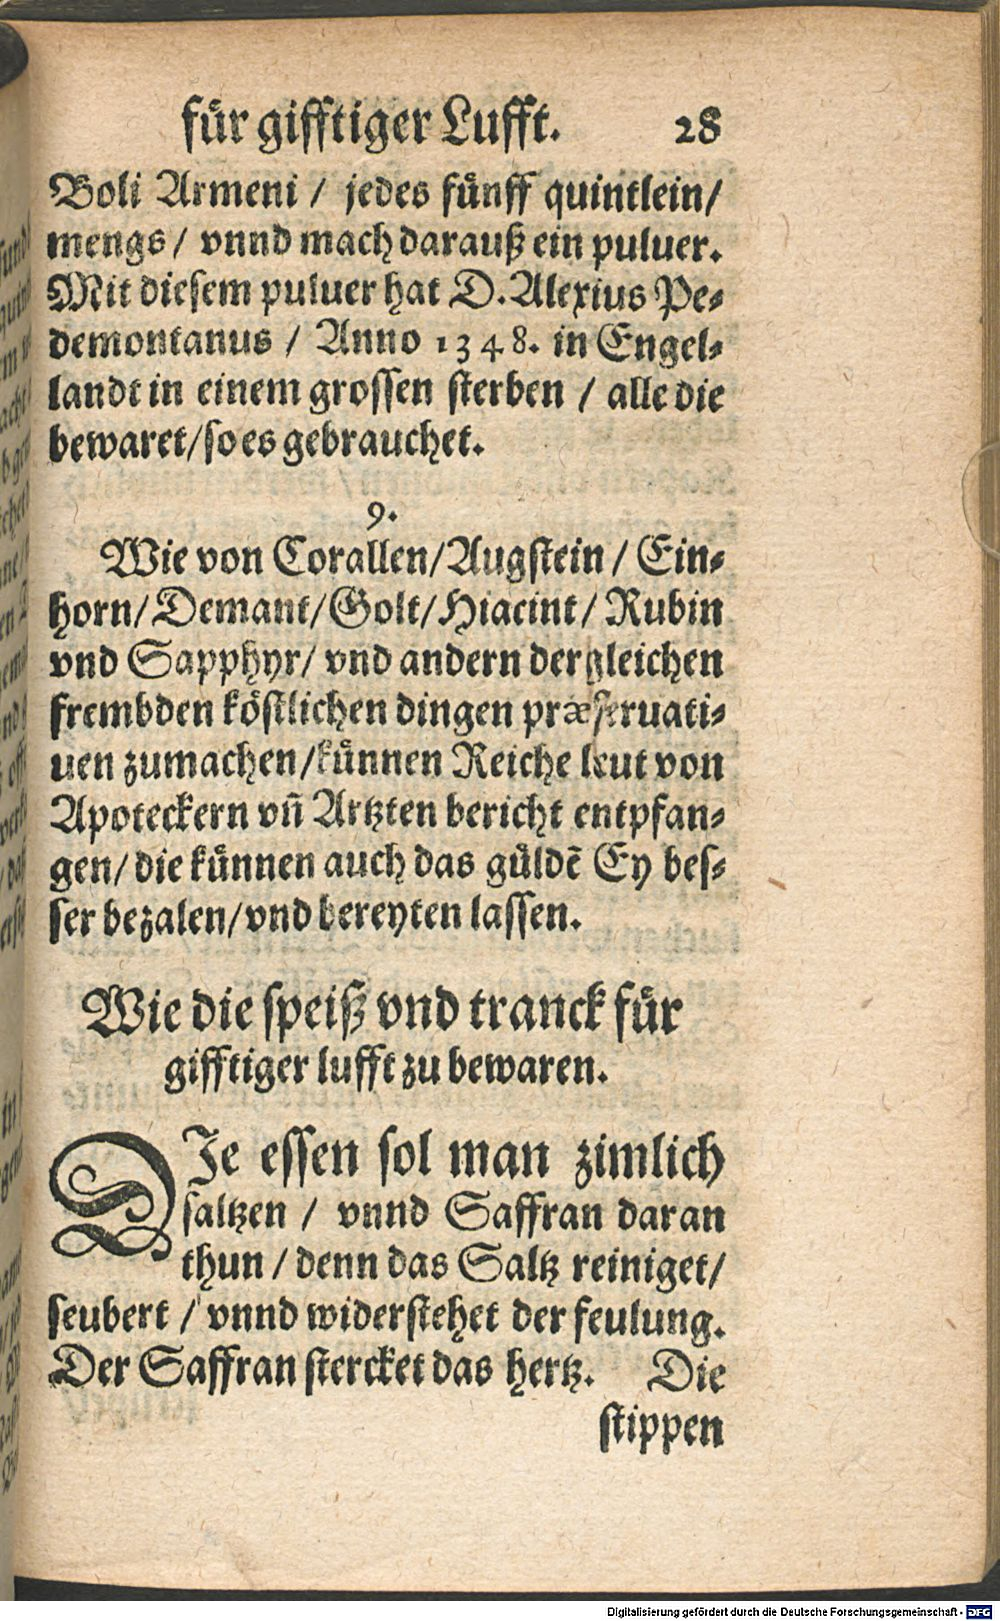 für gifftiger Lufft. 28
Boli Armeni / jedes fünff quintlein/
mengs / vnnd mach darauß ein puluer.
Mit diesem puluer hat D. Alexius Pe⸗
demontanus / Anno 1348. in Engel⸗
landt in einem grossen sterben / alle die
bewaret/so es gebrauchet.
9.
Wie von Corallen/Augstein / Ein⸗
horn/Demant/Golt/Hiacint/Rubin
vnd Sapphyr/ vnd andern dergleichen
frembden köstlichen dingen præseruati⸗
uen zumachen/künnen Reiche leut von
Apoteckern vñ Artzten bericht entpfan⸗
gen/die künnen auch das güldẽ Ey bes⸗
ser bezalen/vnd bereyten lassen.
Wie die speiß vnd tranck für
gifftiger lufft zu bewaren.
DIe essen sol man zimlich
saltzen / vnnd Saffran daran
thun / denn das Saltz reiniget/
seubert / vnnd widerstehet der feulung.
Der Saffran stercket das hertz. Die
stippen
Digitalisierung gefördert durch die Deutsche Forschungsgemeinschaft - DFG